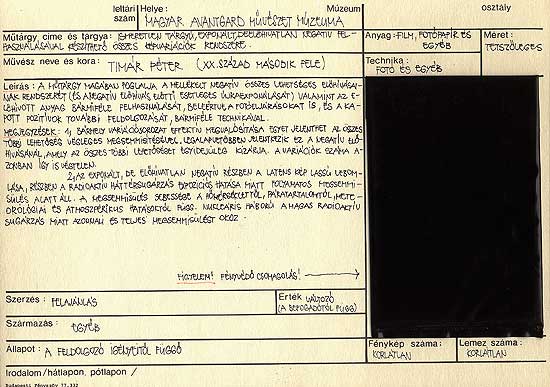 leltári szám
Helye:
MAGYAR AVANTGARD MŰVÉSZET MÚZEUMA
Múzeum
osztály
Műtárgy, címe és tárgya: ISMERETLEN TÁRGYÚ, EXPONÁLT, DE ELŐHÍVATLAN NEGATÍV FEL-
HASZNÁLÁSÁVAL KÉSZÍTHETŐ ÖSSZES KÉPVARIÁCIÓK RENDSZERE.
Anyag: FILM, FOTÓPAPÍR ÉS
EGYÉB
Méret:
TETSZŐLEGES
Művész neve és kora: TIMÁR PÉTER (XX. SZÁZAD MÁSODIK FELE)
Technika:
FOTÓ ÉS EGYÉB
Leírás: A MŰTÁRGY MAGÁBAN FOGLALJA A MELLÉKELT NEGATÍV ÖSSZES LEHETSÉGES ELŐHÍVÁSAI-
NAK RENDSZERÉT (ÉS A NEGATÍV ELŐHÍVÁS ELŐTTI ESETLEGES ÚJRAEXPONÁLÁSÁT) VALAMINT AZ E-
LŐHÍVOTT ANYAG BÁRMIFÉLE FELHASZNÁLÁSÁT, BELEÉRTVE A FOTÓELJÁRÁSOKAT IS, ÉS A KA-
POTT POZITÍVOK TOVÁBBI FELDOLGOZÁSÁT, BÁRMIFÉLE TECHNIKÁVAL.
MEGJEGYZÉSEK: 1, BÁRMELY VARIÁCIÓSOROZAT EFFEKTÍV MEGVALÓSÍTÁSA EGYET JELENTHET AZ ÖSSZES
TÖBBI LEHETŐSÉG VÉGLEGES MEGSEMMISÍTÉSÉVEL. LEGALAPVETŐBBEN JELENTKEZIK EZ A NEGATÍV ELŐ-
HÍVÁSÁNÁL, AMELY AZ ÖSSZES TÖBBI LEHETŐSÉGET EGYIDEJŰLEG KIZÁRJA. A VARIÁCIÓK SZÁMA A-
ZONBAN ÍGY IS VÉGTELEN.
2, AZ EXPONÁLT, DE ELŐHÍVATLAN NEGATÍV RÉSZBEN A LATENS KÉP LASSÚ LEBOM-
LÁSA, RÉSZBEN A RADIOAKTÍV HÁTTÉRSUGÁRZÁS EXPOZÍCIÓS HATÁSA MIATT FOLYAMATOS MEGSEMMI-
SÜLÉS ALATT ÁLL. A MEGSEMMISÜLÉS SEBESSÉGE A HŐMÉRSÉKLETTŐL, PÁRATARTALOMTÓL, METE-
OROLÓGIAI ÉS ATMOSZFÉRIKUS HATÁSOKTÓL FÜGG. NUKLEÁRIS HÁBORÚ A MAGAS RADIOAKTÍV
SUGÁRZÁS MIATT AZONNALI ÉS TELJES MEGSEMMISÜLÉST OKOZ.
FIGYELEM! FÉNYVÉDŐ CSOMAGOLÁS!
Szerzés: FELAJÁNLÁS
Érték VÁLTOZÓ
(A BEFOGADÓTÓL FÜGG)
Származás:
EGYÉB
Állapot: A FELDOLGOZÓ IGÉNYEITŐL FÜGGŐ
Fénykép száma:
KORLÁTLAN
Lemez száma:
KORLÁTLAN
Irodalom/hátlapon, pótlapon/
Budapesti Fényképy 77.332